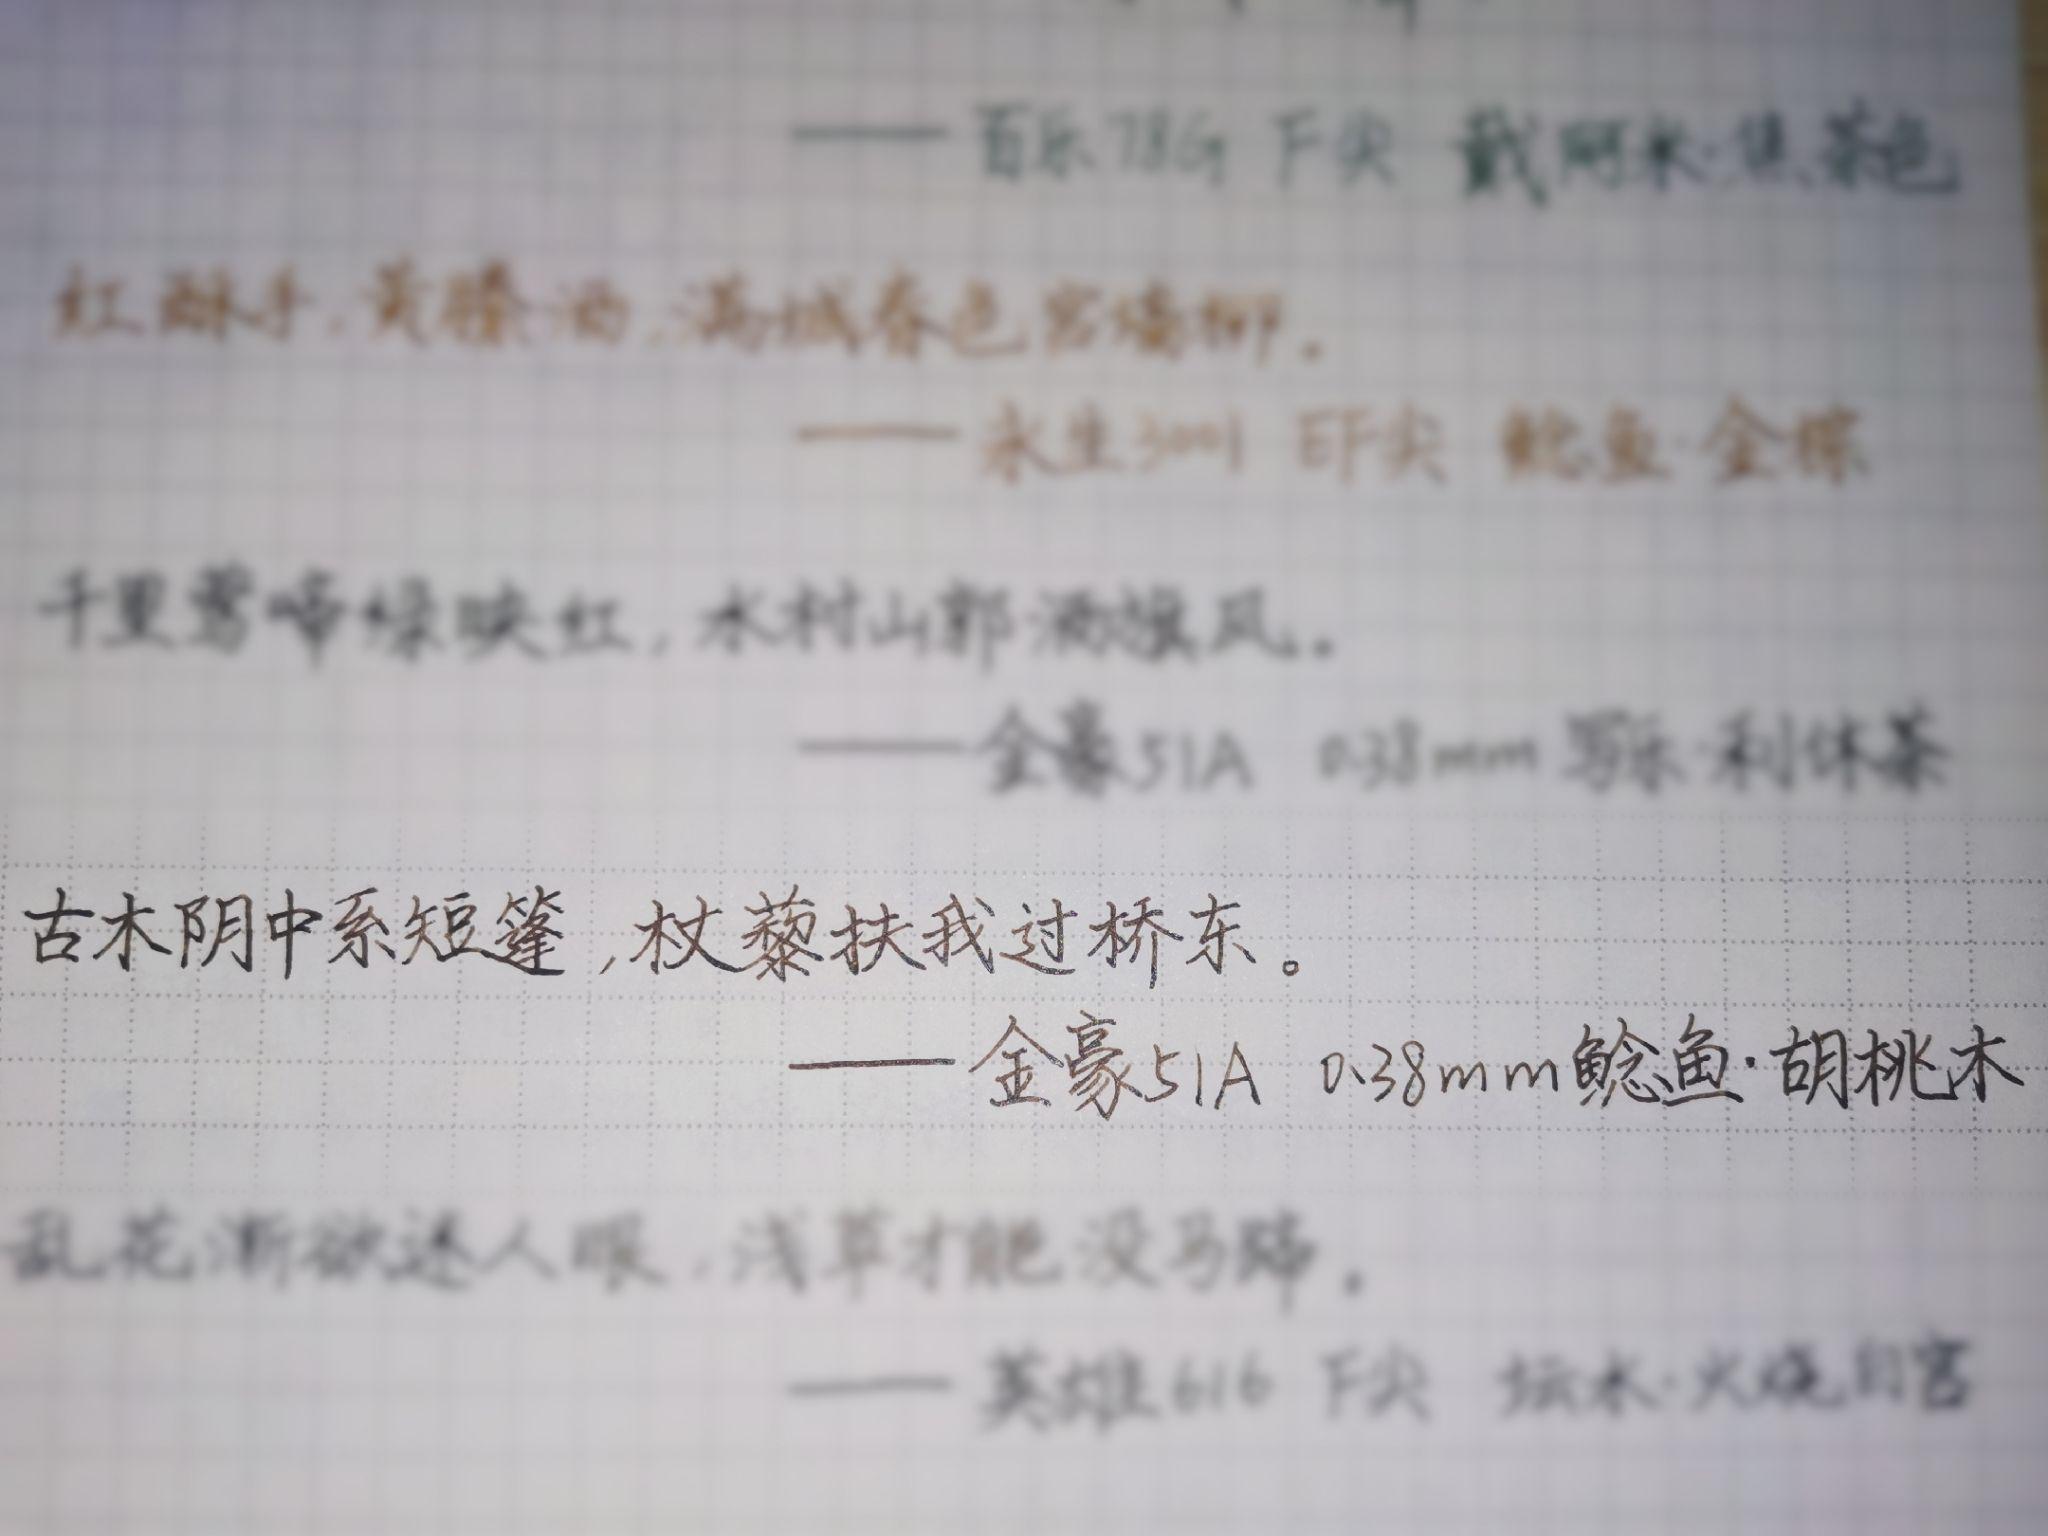 ——百乐78G F尖 戴阿米·焦茶色
红酥手,黄滕酒,满城春色宫墙柳。
——永生3001 EF尖 鲶鱼·金棕
千里莺啼绿映红,水村山郭酒旗风。
——金豪51A 0.38mm 写乐·利休茶
古木阴中系短篷,杖藜扶我过桥东。
——金豪51A 0.38mm 鲶鱼·胡桃木
乱花渐欲迷人眼,浅草才能没马蹄。
——英雄616 F尖 坛水·火烧白宫